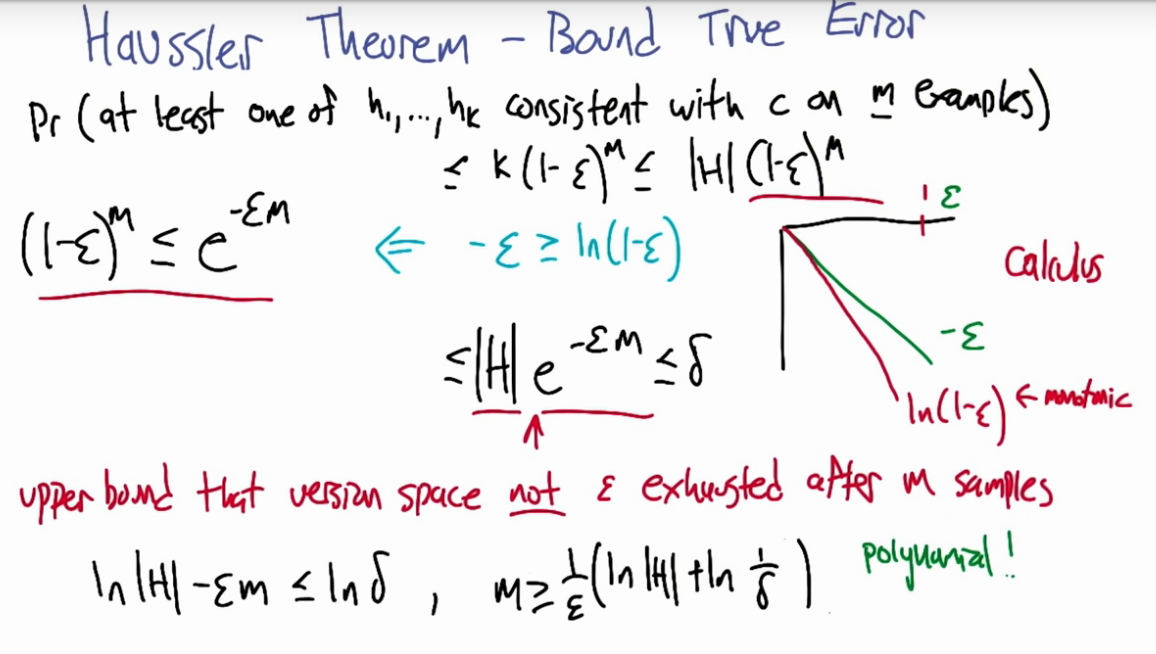 Haussler Theorem - Bound True Error
Pr (at least one of h₁,...,hₖ consistent with c on m examples)
≤ k(1-ε)ᵐ ≤ |H| (1-ε)ᵐ
(1-ε)ᵐ ≤ e^{-εm}
⇐ -ε ≥ ln(1-ε)
ε
calculus
-ε
ln(1-ε) ← monotonic
≤ |H| e^{-εm} ≤ δ
↑
upper bound that version space not ε exhausted after m samples
ln |H| - εm ≤ ln δ , m ≥ 1/ε (ln |H| + ln 1/δ)
polynomial!